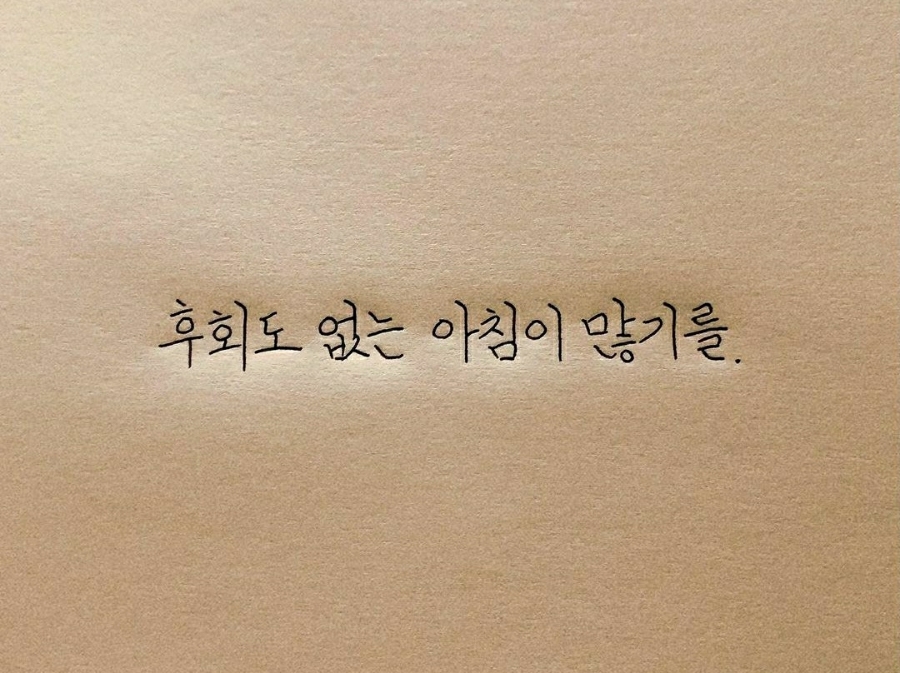 후회도 없는 아침이 많기를.